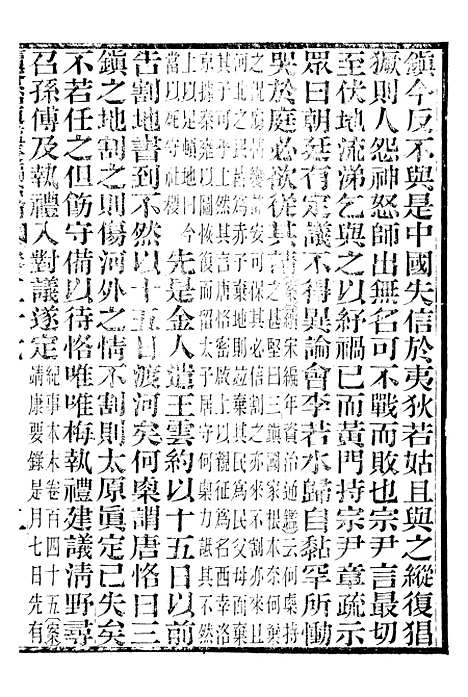 鎮今反不與是中國失信於夷狄若姑且與之縱復猖
獗則人怨神怒師出無名可不戰而敗也宗尹言最切
至伏地流涕乞與之以紓禍已而黃門持宗尹章疏示
眾曰朝廷有定議不得異論會李若水歸自黏罕所慟
哭於庭必欲從其言案續宋編年資治通鑑云何㮚持
之甚堅曰三鎮國家根本奈何
之況情變詐安可保其必信割之亦來不割亦來
河北之民皆吾赤子棄地則并其民棄之為民父母而棄
其子可乎上悟幸洛
京據秦雍以圖恢復而留太子居守何㮚力其不然
上以足頓地曰今
當以死守社稷先是金人遣王雲約以十五日以前
告割地書到不然以十五日渡河矣何㮚謂唐恪曰三
鎮之地割之則傷河外之情不割則太原真定已失矣
不若任之但飭守備以待恪唯唯梅執禮建議清野尋
召孫傅及執禮入對議遂定紀事本末卷百四十五案
靖康要錄是月七日先有